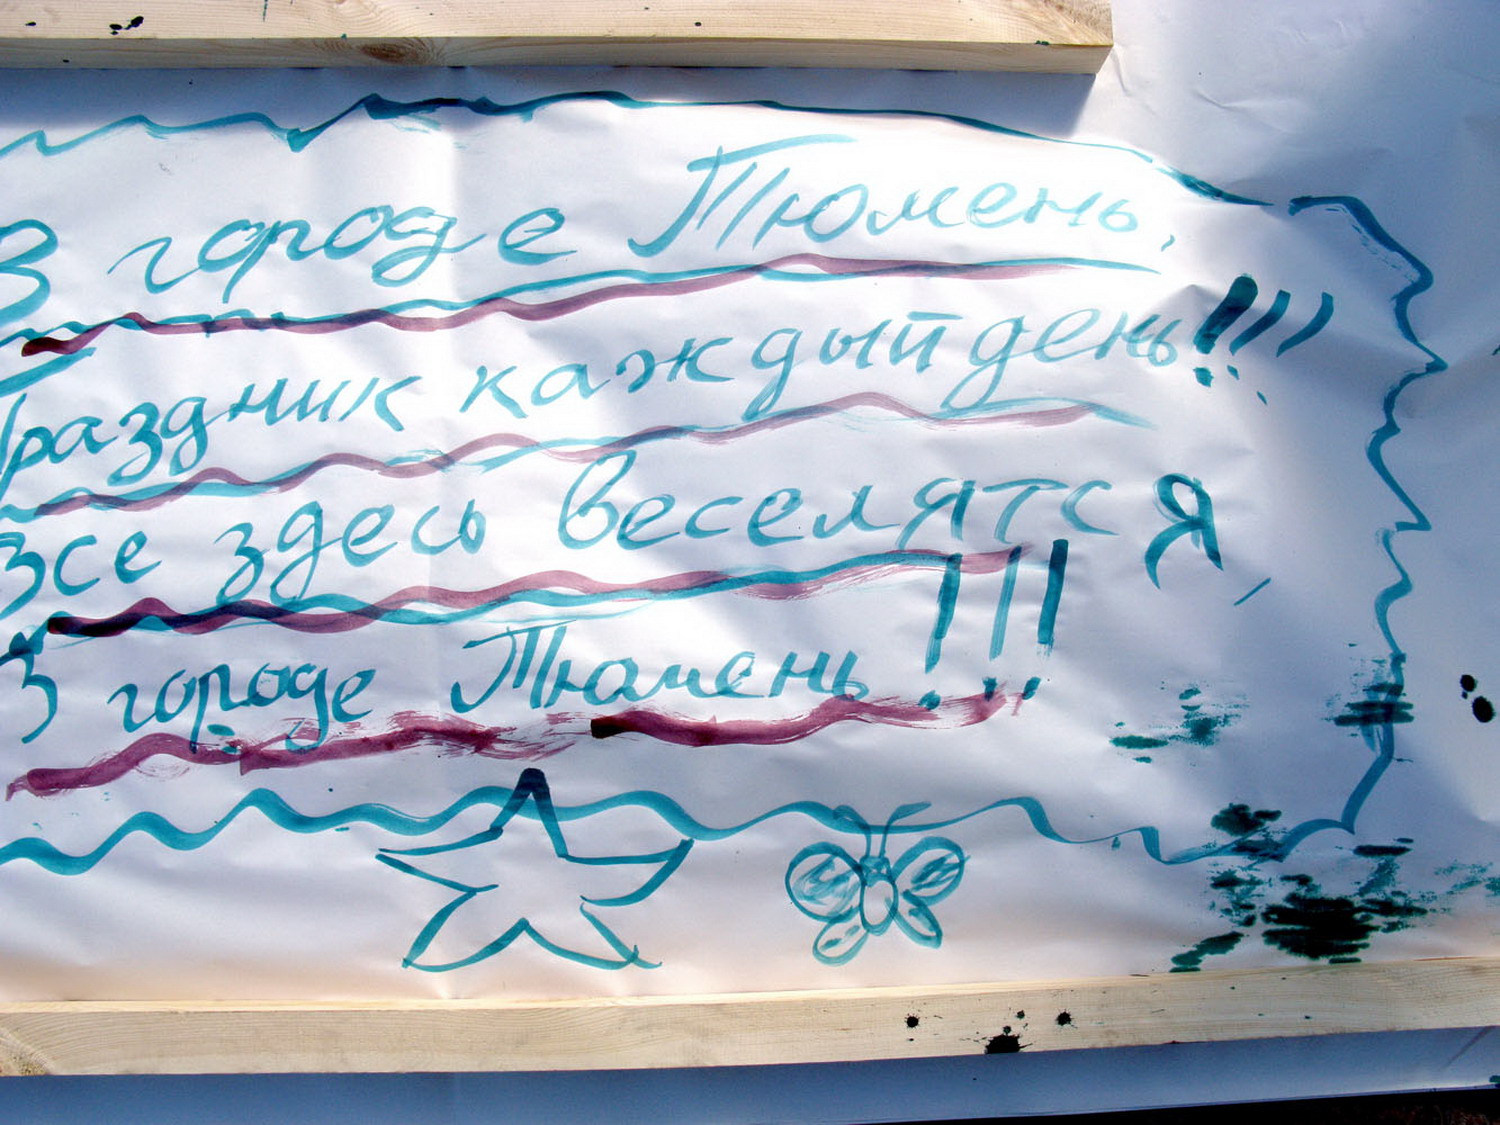 В городе Тюмень,
Праздник каждый день!!!
Все здесь веселятся,
В городе Тюмень!!!